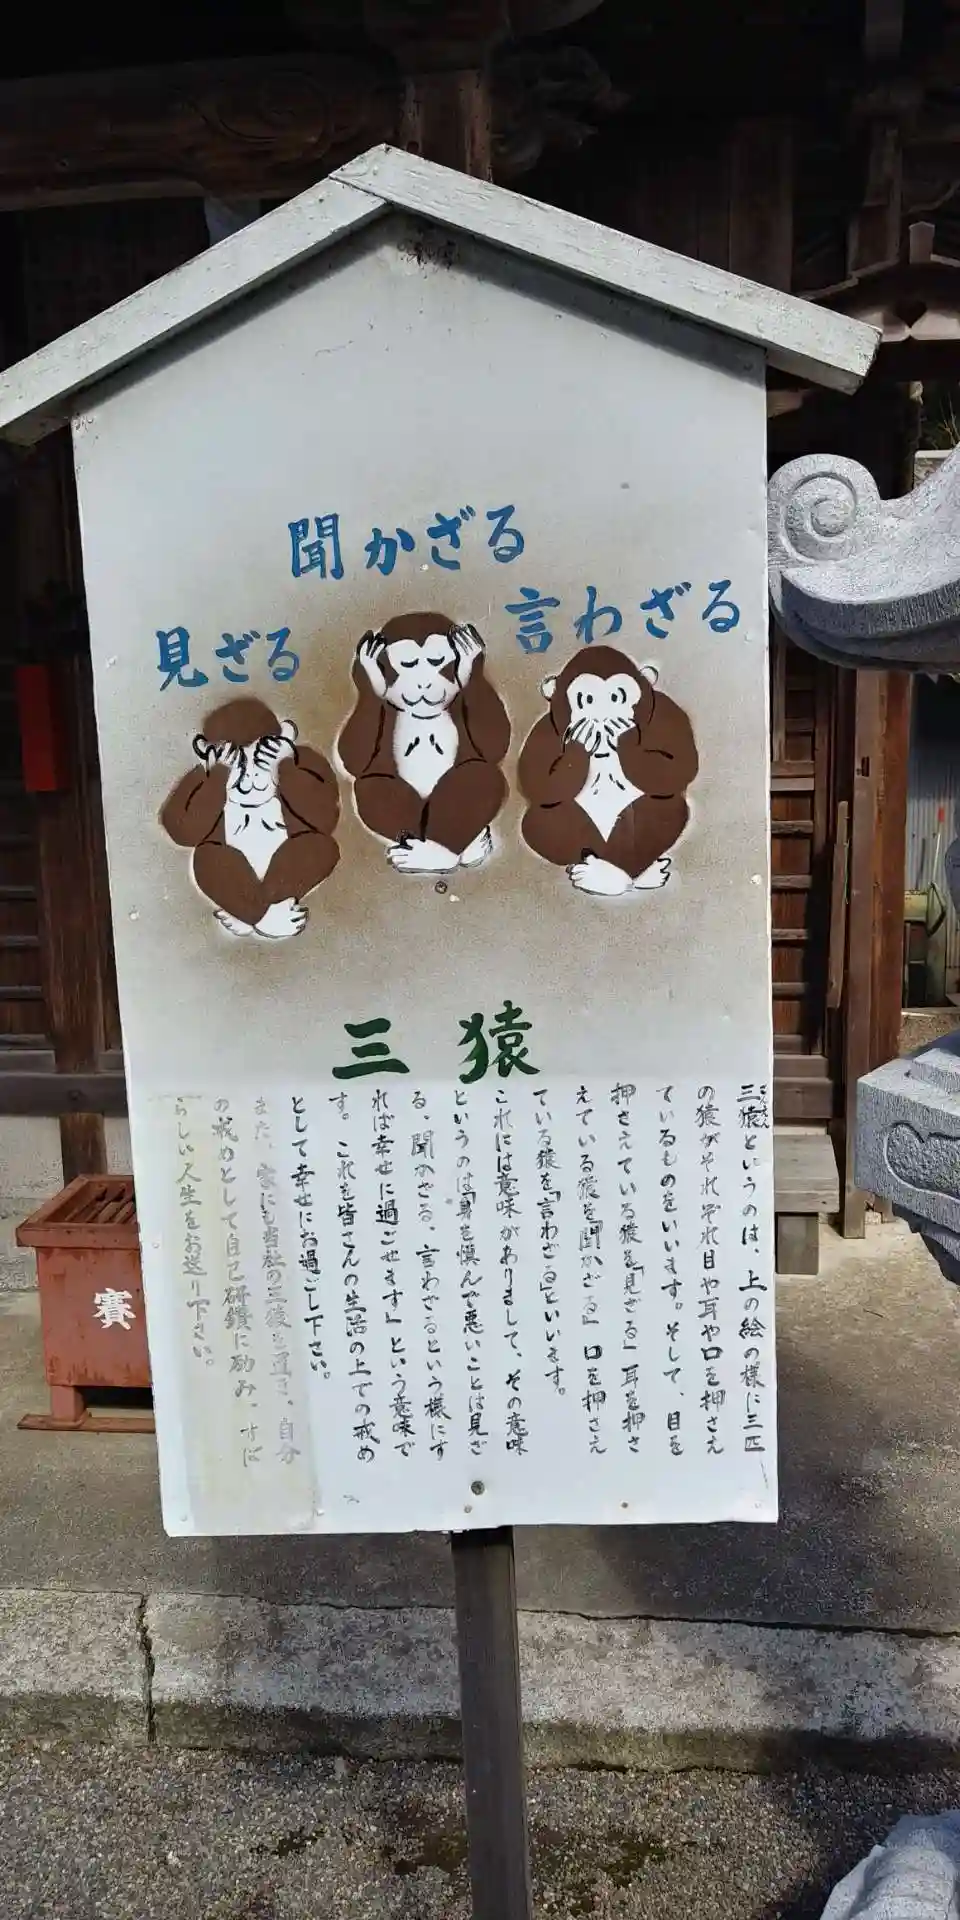 聞かざる
言わざる
見ざる
三猿
さんさる
三猿というのは、上の絵の様に三匹
の猿がそれぞれ目や耳や口を押さえ
ているものをいいます。そして、目を
押さえている猿を「見ざる」耳を押さ
えている猿を「聞かざる」口を押さえ
ている猿を「言わざる」といいます。
これには意味がありまして、その意味
というのは「身を慎んで悪いことは見ざ
る、聞かざる、言わざるという様にす
れば幸せに過ごせます」という意味で
す。これを皆さんの生活の上での戒め
として幸せにお過ごし下さい。
また、家にも当社の三猿を置き、自分
の戒めとして自己研鑽に励み、すば
らしい人生をお送り下さい。
賽